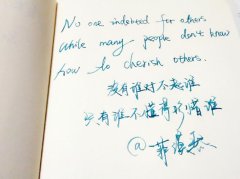 No one indebted for others,
while many people don't know
how to cherish others.
没有谁对不起谁
只有谁不懂得珍惜谁
@